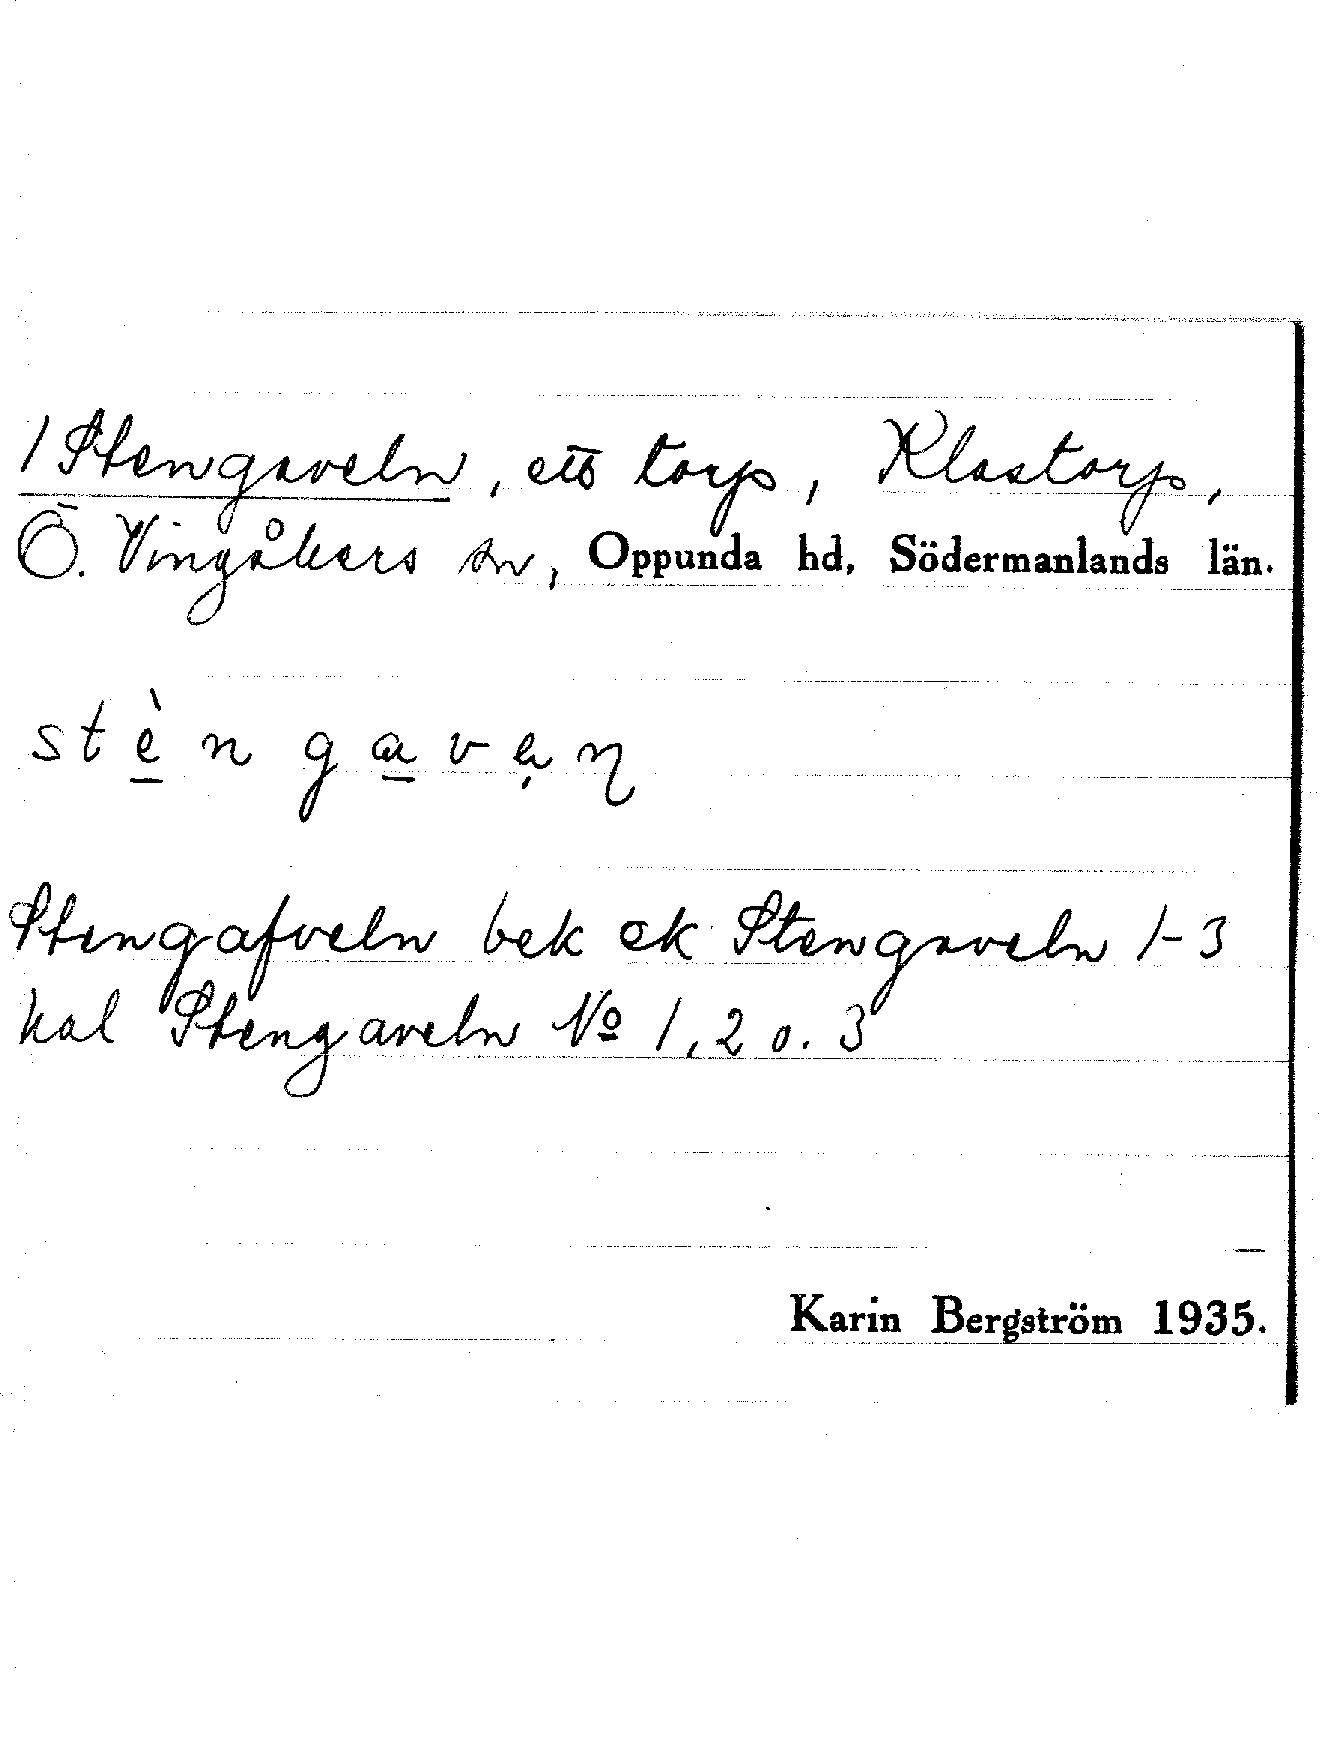 1 Stengaveln, ett torp, Klastorp,
Ö. Vingåkers sn, Oppunda hd, Södermanlands län.
stè̠nga̠vəɳ
Stengafveln bek ek Stengaveln 1-3
kal Stengaveln Nº 1, 2 o. 3
Karin Bergström 1935.